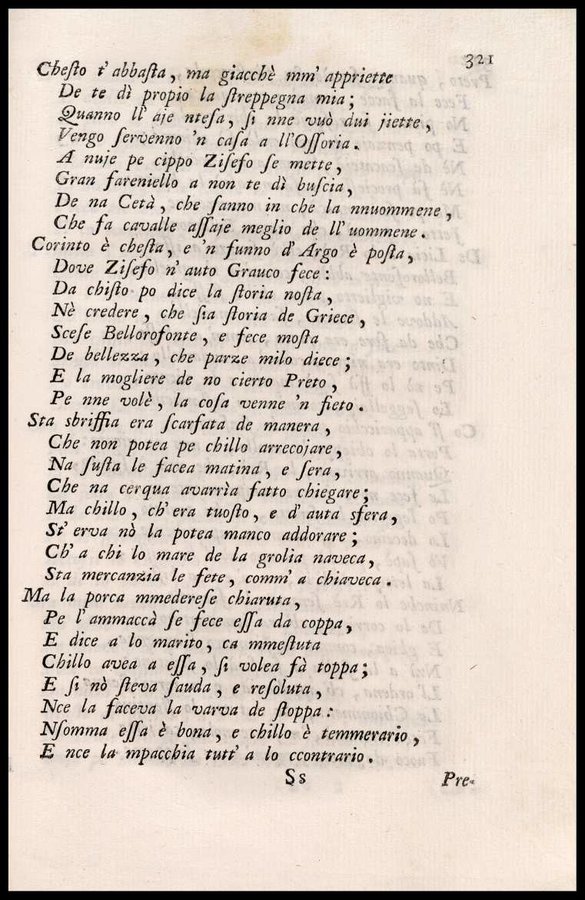 321
Cheſto t'abbaſta, ma giacchè mm'appriette
De te dì propio la ſtreppegna mia;
Quanno ll'aje nteſa, ſi nne vuò dui jiette,
Vengo ſervenno 'n caſa a ll'Oſſoria.
A nuje pe cippo Ziſefo ſe mette,
Gran fareniello a non te dì buſcia,
De na Cetà, che ſanno in che la nnuommene,
Che fa cavalle aſſaje meglio de ll'uommene.
Corinto è cheſta, e 'n funno d'Argo è poſta,
Dove Ziſefo n'auto Grauco fece:
Da chiſto po dice la ſtoria noſta,
Nè credere, che ſia ſtoria de Griece,
Sceſe Bellorofonte, e fece moſta
De bellezza, che parze milo diece;
E la mogliere de no cierto Preto,
Pe nne volè, la coſa venne 'n fieto.
Sta sbriffia era ſcarfata de manera,
Che non potea pe chillo arrecojare,
Na ſuſta le facea matina, e ſera,
Che na cerqua avarrìa fatto chiegare;
Ma chillo, ch'era tuoſto, e d'auta sfera,
St'erva nò la potea manco addorare;
Ch'a chi lo mare de la grolia naveca,
Sta mercanzia le fete, comm'a chiaveca.
Ma la porca mmedereſe chiaruta,
Pe l'ammaccà ſe fece eſſa da coppa,
E dice a lo marito, ca mmeſtuta
Chillo avea a eſſa, ſi volea fà toppa;
E ſi nò ſteva ſauda, e reſoluta,
Nce la faceva la varva de ſtoppa:
Nſomma eſſa è bona, e chillo è temmerario,
E nce la mpacchia tutt'a lo ccontrario.
Ss
Pre-